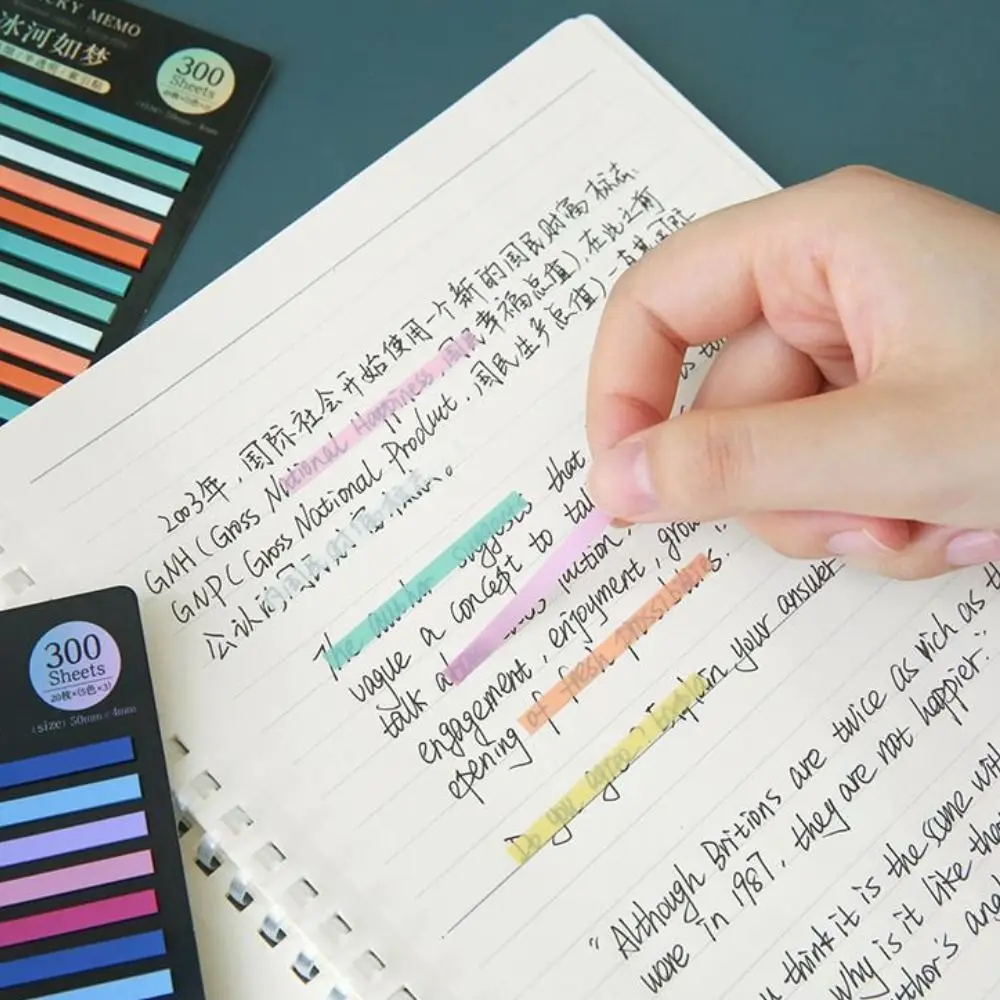 KY MEMO
冰河如梦
300
Sheets
300
Sheets
20枚×(5色×3)
(size) 50mm×4mm
2003年,国际社会开始使用一个新的国民财富标志.
GNH (Gross National Happiness,国民幸福总值),在此之前
GNP (Gross National Product,国民生产总值)一直是国际
公认的国民财富标志。
The author suggests that
vague a concept to
talk about
engagement, enjoyment,
opening of fresh possibilities.
Do you agree? Explain your answer
"Although Britions are twice as rich as
ware in 1987, they are not happier."
think it is the same with
Why is it like